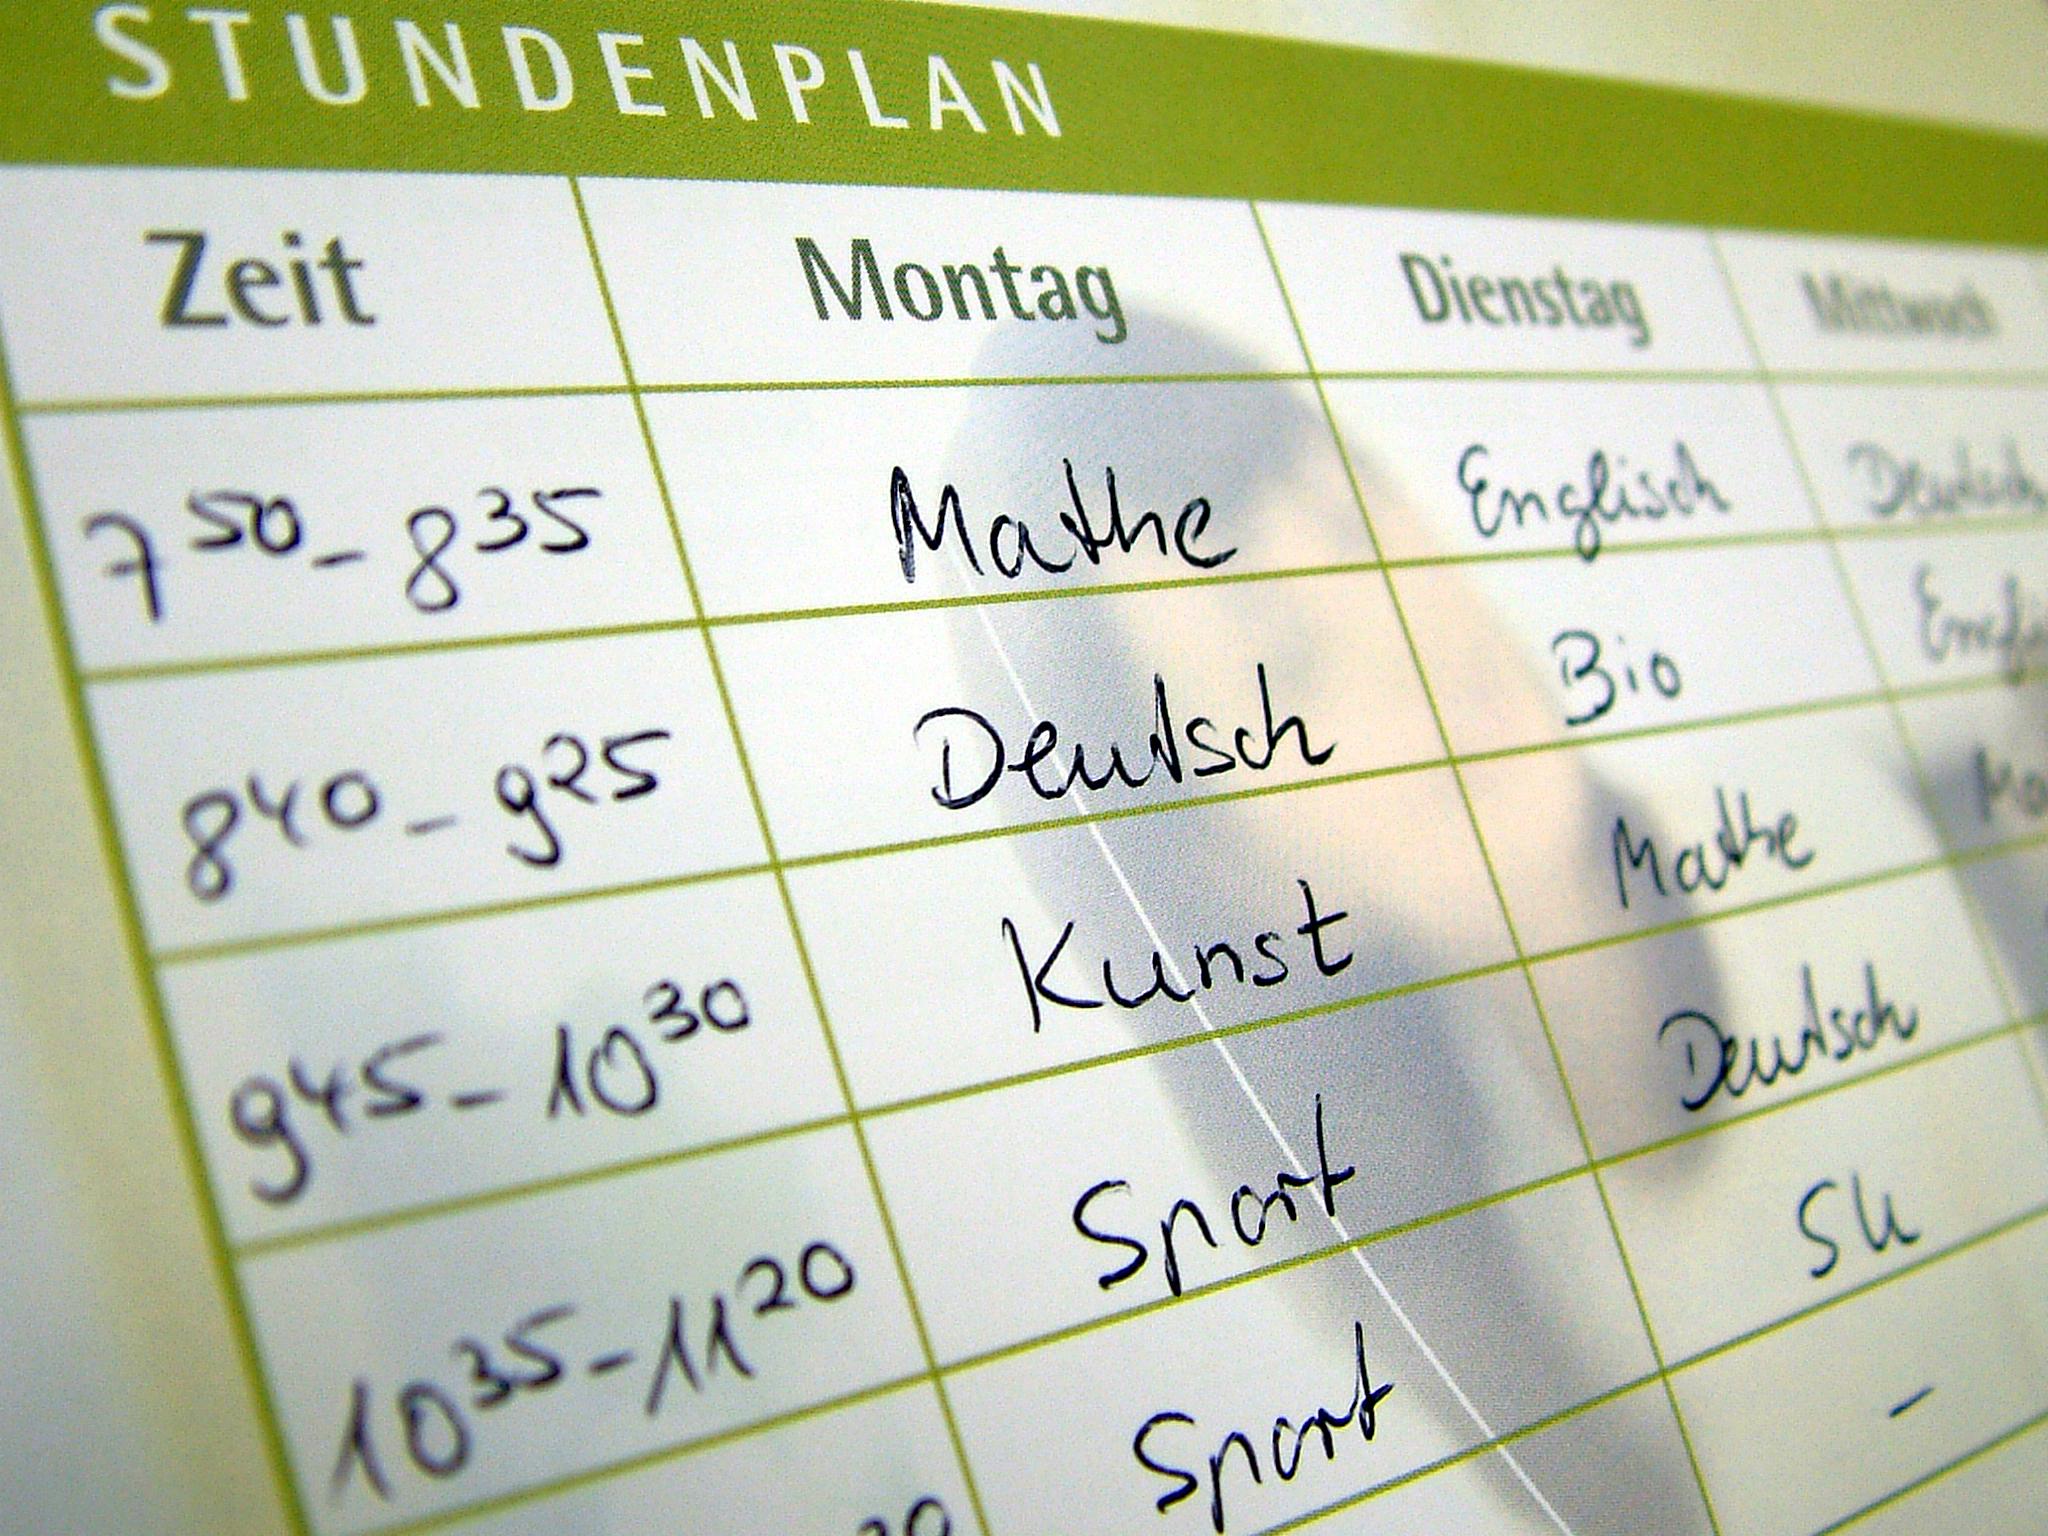 STUNDENPLAN
Zeit Montag Dienstag Mittwoch
7⁵⁰ - 8³⁵ Mathe Englisch Deutsch
8⁴⁰ - 9²⁵ Deutsch Bio
9⁴⁵ - 10³⁰ Kunst Mathe
10³⁵ - 11²⁰ Sport Deutsch
Sport
-